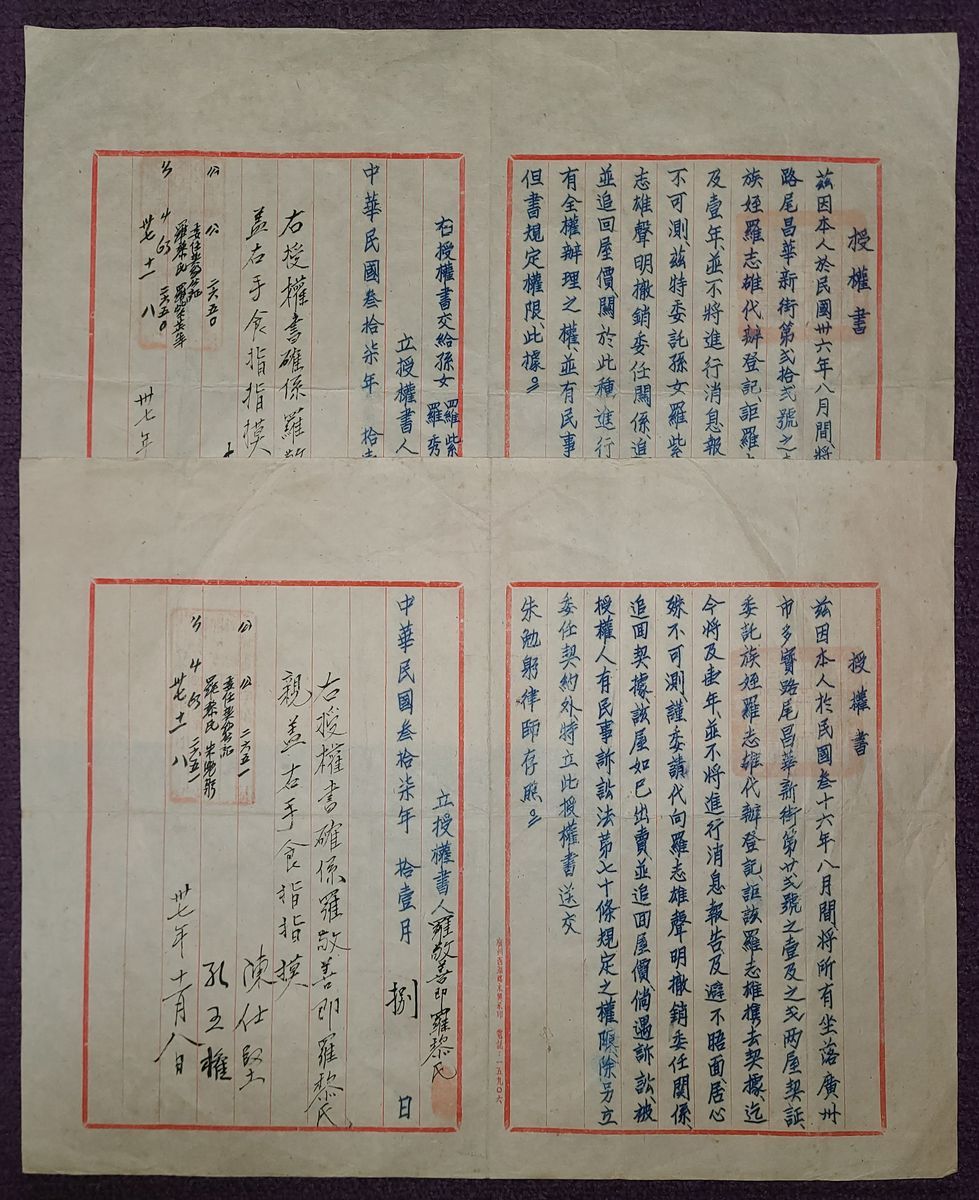 授權書
茲因本人於民國卅六年八月間將
路尾昌華新街第弍拾弍號之
族姪羅志雄代辦登記、詎羅
及壹年、並不將進行消息報
不可測、茲特委託孫女羅紫
志雄聲明撤銷委任關係追
並追回屋價、關於此種進行
有全權辦理之權、並有民事
但書規定權限、此據
右授權書交給孫女羅紫
羅秀
立授權書人
中華民國叁拾柒年 拾
右授權書確係羅敬
盖右手食指指摸
卅七年
公 二六五〇
卅七 十一 八
授權書
茲因本人於民國叁十六年八月間、將所有坐落廣州
市多寶路尾昌華新街第廿弍號之壹及之弍两屋契証
委託族姪羅志雄代辦登記、詎該羅志雄携去契據、迄
今將及壹年、並不將進行消息報告及避不晤面、居心
殊不可測、謹委請代向羅志雄聲明撤銷委任關係、
追回契據、該屋如已出賣、並追回屋價、倘遇訴訟、被
授權人有民事訴訟法第七十條規定之權限、除另立
委任契約外特立此授權書送交
朱勉躬律師存照
立授權書人羅敬善即羅黎氏
中華民國叁拾柒年 拾壹月 捌 日
右授權書確係羅敬善即羅黎氏
親盖右手食指指摸
陳仕堅
孔玉權
卅七年十一月八日
公 二六五一
羅黎氏 朱勉躬
卅七 十一 八